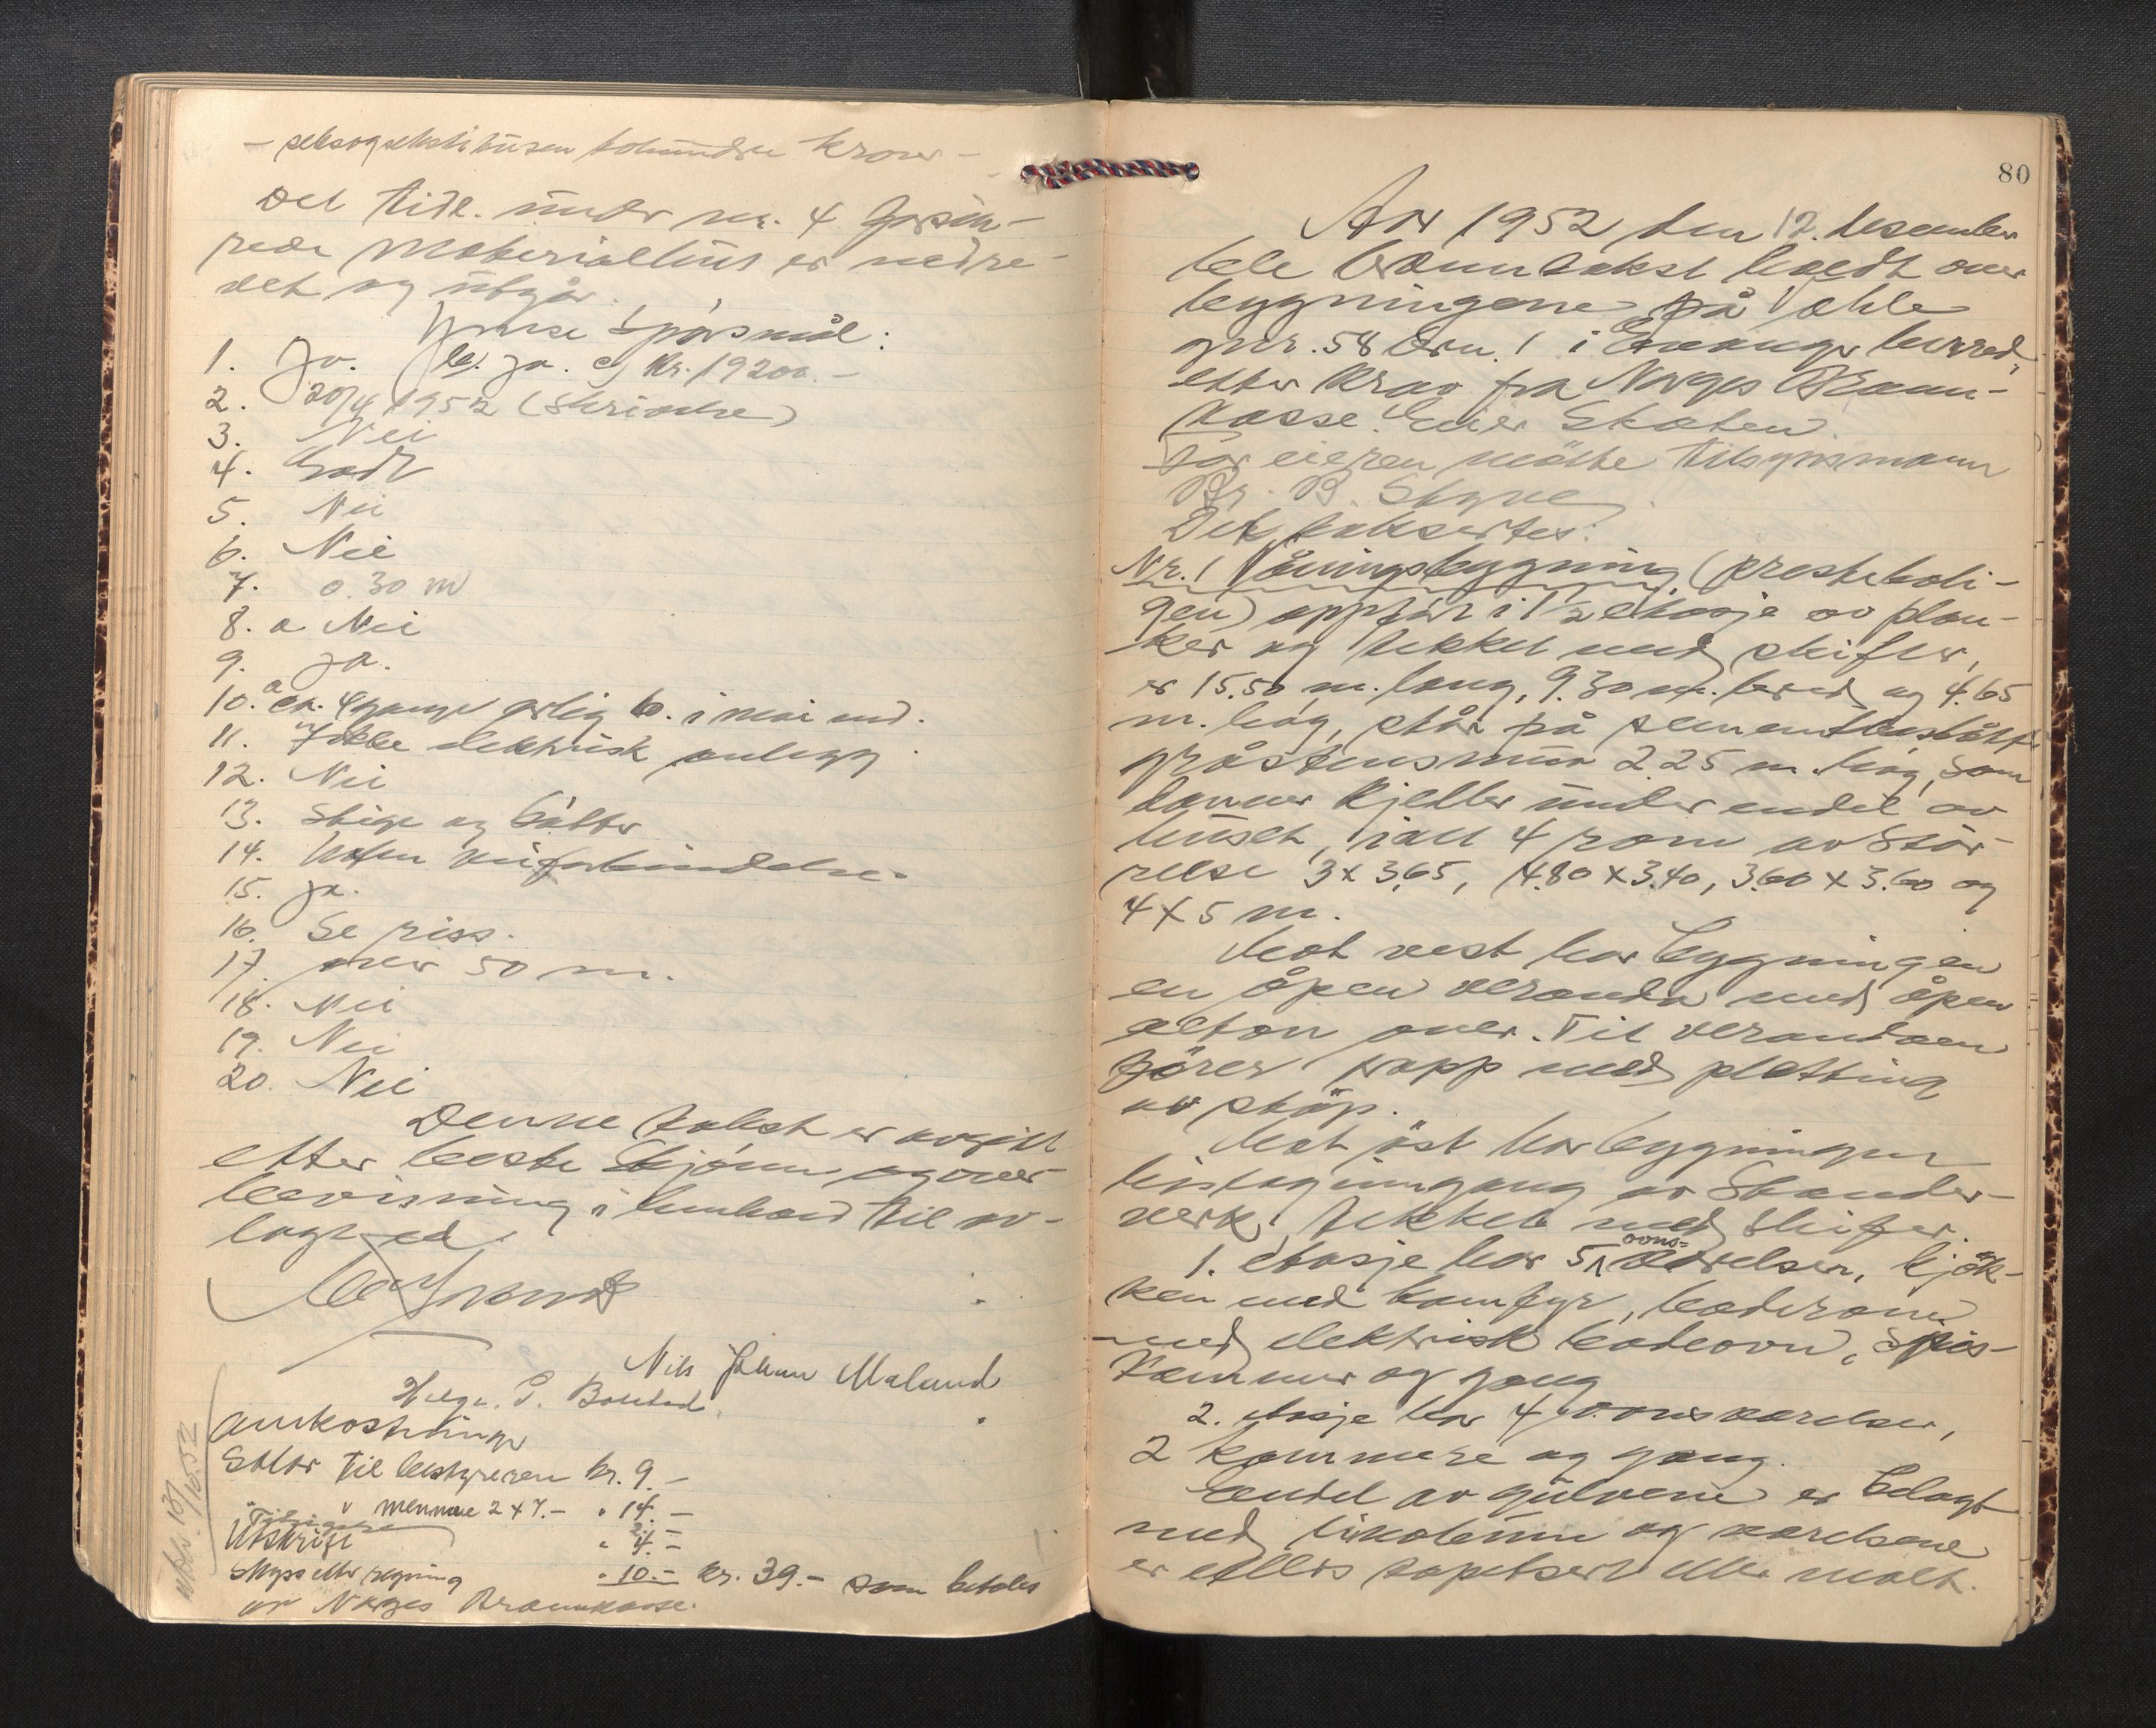 - seksogsekstitusen tohundre kroner -
Det tidl. under nr. 4 forsik-
rede materialhus er nedre-
vet og utgår.
Ymse spörsmål:
1. Ja. b) ja. c) Kr. 19200.-
2. 20/4 1952 (Skrindre)
3. Nei
4. Godt
5. Nei
6. Nei
7. 0.30 m
8. a Nei
9. ja.
10. a ca. 4 ganger årlig b. i mai md.
11. Ikke elektrisk anlegg.
12. Nei
13. Stige og bötter
14. Uten veiforbindelse.
15. ja.
16. Se riss.
17. over 50 m.
18. Nei
19. Nei
20. Nei
Denne takst er avgitt
etter beste skjönn og over-
bevisning i henhold til av-
lagt ed.
Nils Johan Maland
Helge. G. Bolstad
Omkostninger
Salær til bestyreren kr. 9.-
" " mennene 2 x 7.- " 14.-
Tilsigelse " 2.-
Utskrift " 4.-
Skyss etter regning " 10.- kr. 39.- som betales
av Norges Brannkasse.
80
År 1952 den 12. desember
ble branntakst holdt over
bygningene på Væhle
gnr. 58 brn. 1 i Evanger herred,
etter krav fra Norges Brann-
kasse. Eier Staten.
For eieren mötte tilsynsmann
Br. B. Styve.
Det taksertes:
Nr. 1 Våningsbygning (presteboli-
gen) oppfört i 1 1/2 etasje av plan-
ker og tekket med skifer,
er 15.50 m. lang, 9.30 m. bred og 4.65
m. høg, står på sementkaslått
gråstensmur 2.25 m. høg, som
danner kjeller under endel av
huset, i alt 4 rom av stör-
relse 3 x 3.65, 4.80 x 3.40, 3.60 x 3.60 og
4 x 5 m.
Mot vest har bygningen
en åpen veranda med åpen
altan over. Til verandaen
förer trapp med platting
av støp.
Mot öst har bygningen
bislaginngang av stender-
verk, tekket med skifer.
1. etasje har 5 ovns- værelser, kjök-
ken med komfyr, baderom
med elektrisk badeovn, spis-
kammer og gang
2. etasje har 4 ovnsværelser,
2 kammere og gang.
Endel av gulvene er belagt
med linoleum og værelsene
er ellers tapetsert eller malt.